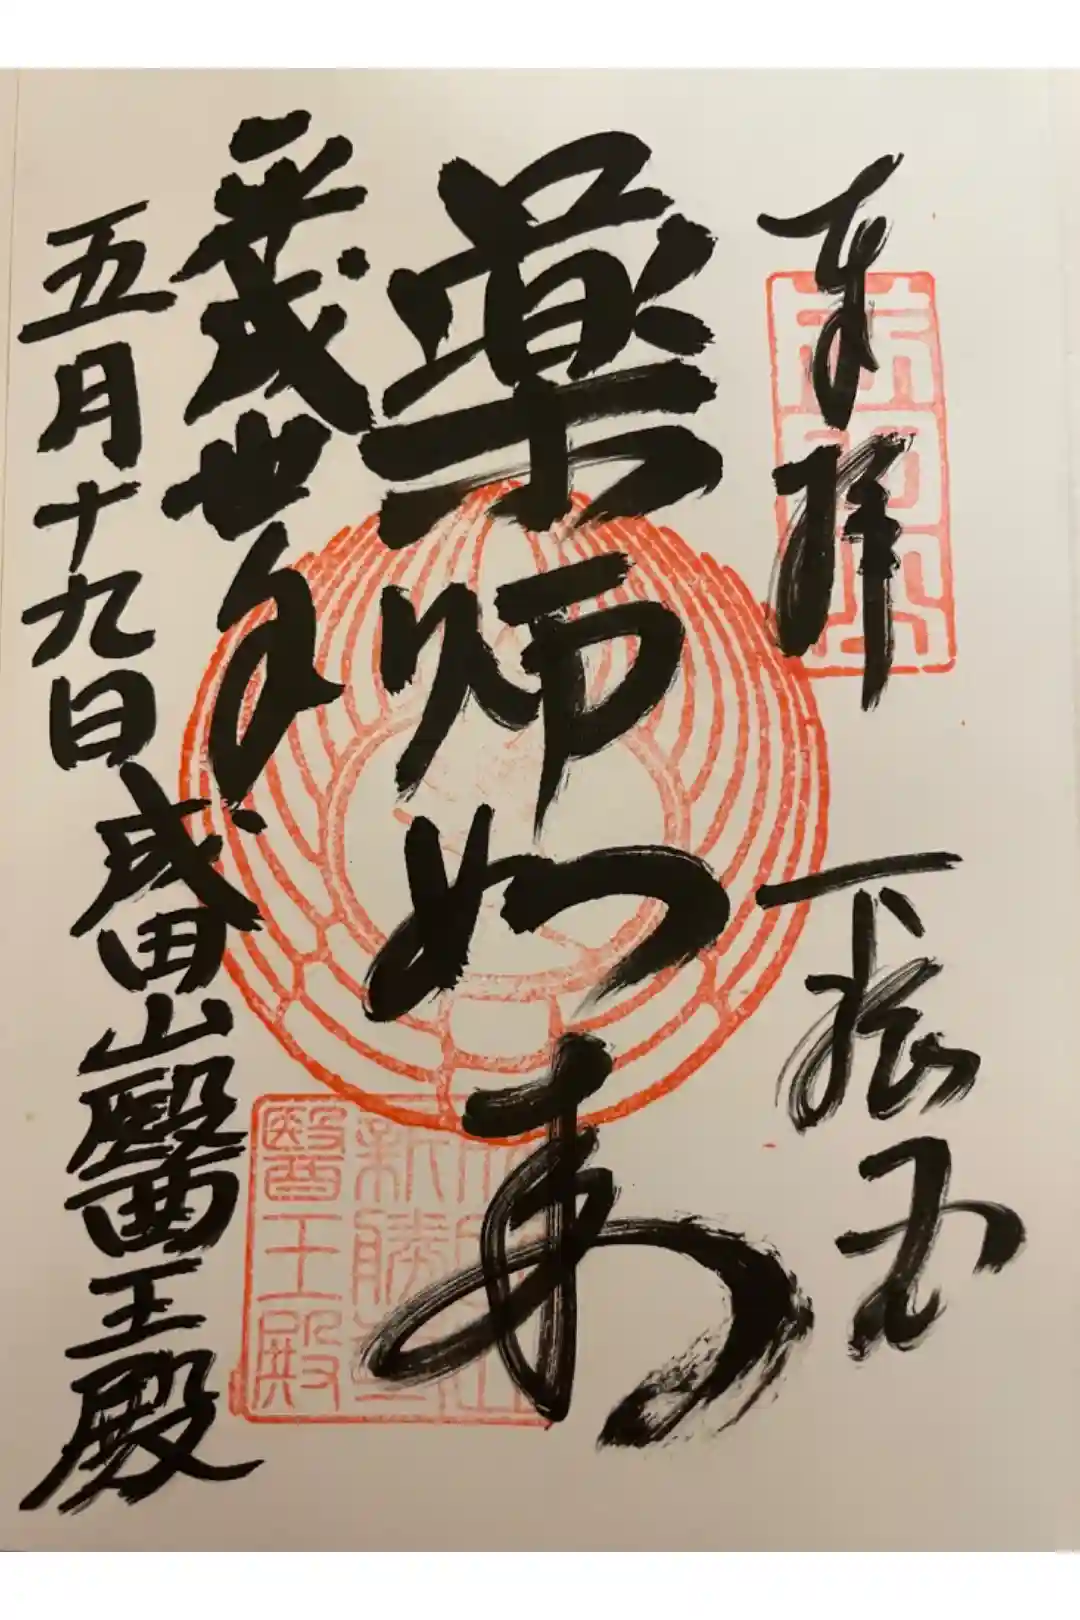 奉拝 下総国
薬師如来
平成卅年
五月十九日 成田山醫王殿
成田山
新勝寺
醫王殿